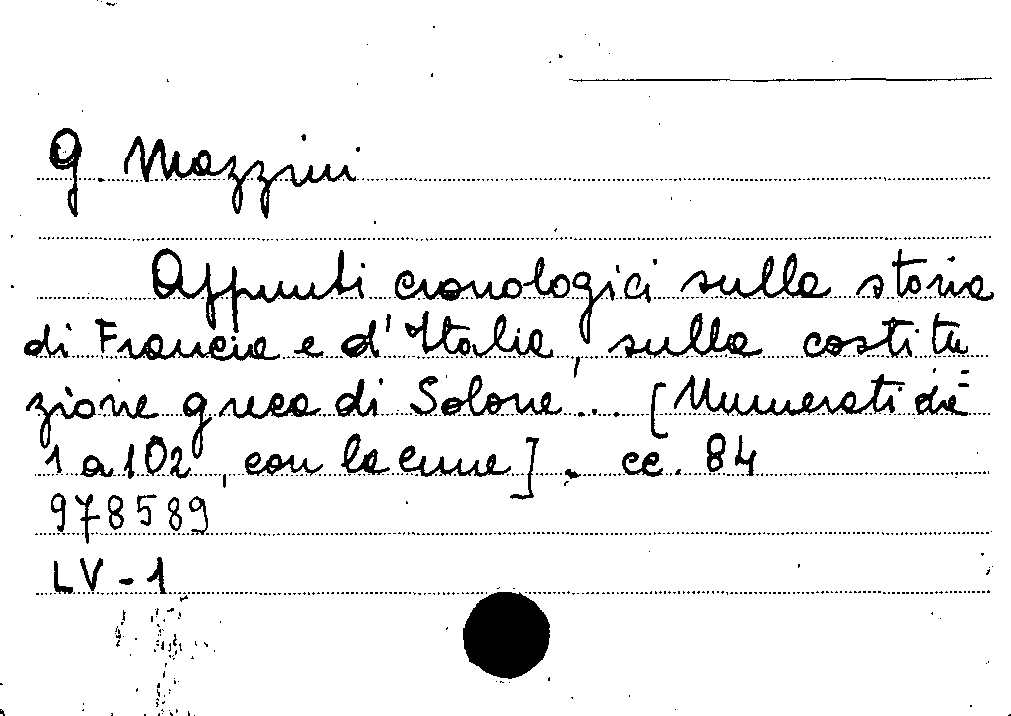 G. Mazzini
Appunti cronologici sulla storia
di Francia e d'Italia, sulla costitu
zione greca di Solone... [Numerati da
1 a 102, con lacune]. cc. 84
978589
LV-1